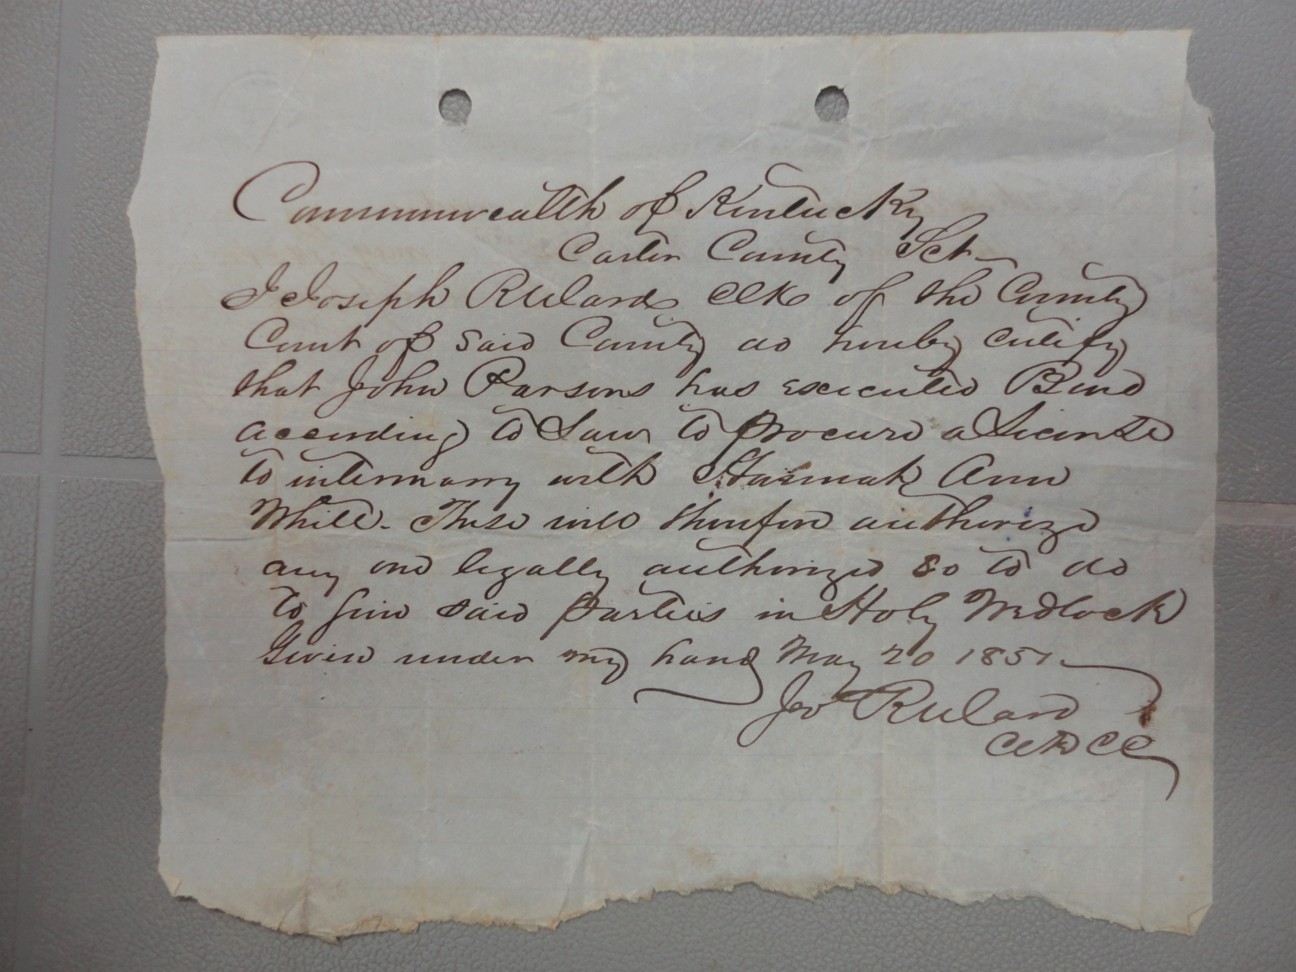 Commonwealth of Kentucky
Carter County Sct
I Joseph Rulard Clk of the County
Court of said County do hereby certify
that John Parsons has executed Bond
according to Law to procure a License
to intermarry with Hannah Ann
White. These will therefore authorize
any one legally authorized so to do
to join said parties in Holy Wedlock
Given under my hand May 20 1851
Jos Rulard
Clk CC